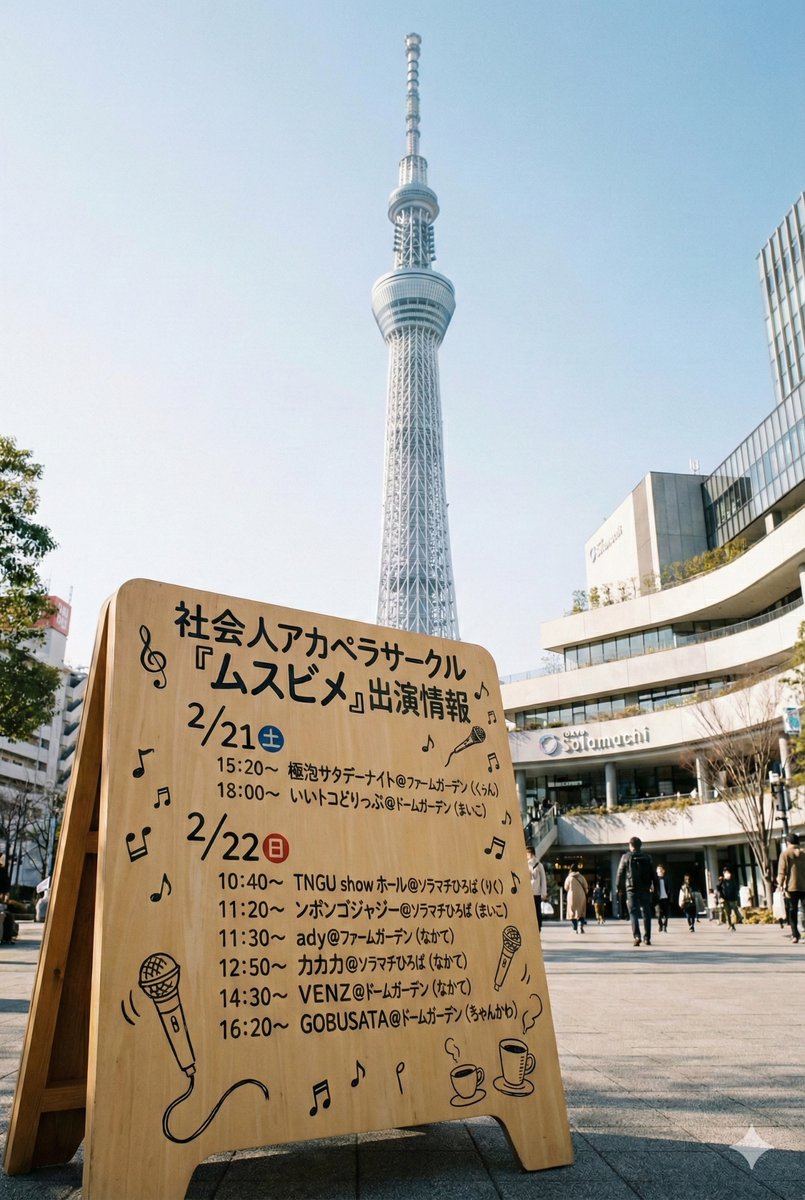 社会人アカペラサークル
『ムスビメ』出演情報
2/21土
15:20〜 極泡サタデーナイト@ファームガーデン(くぅん)
18:00〜 いいトコどりっぷ@ドームガーデン(まいこ)
2/22日
10:40〜 TNGU show ホール@ソラマチひろば(りく)
11:20〜 ンポンゴジャジー@ソラマチひろば(まいこ)
11:30〜 ady@ファームガーデン(なかて)
12:50〜 カカカ@ソラマチひろば(なかて)
14:30〜 VENZ@ドームガーデン(なかて)
16:20〜 GOBUSATA@ドームガーデン(きゃんかわ)
Solamachi
Solamachi